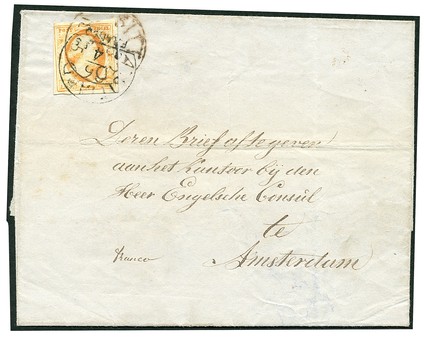 FRANCO
Deren Brief af te geven
aan het Kantoor bij den
Heer Engelsche Consul
te
Franco Amsterdam